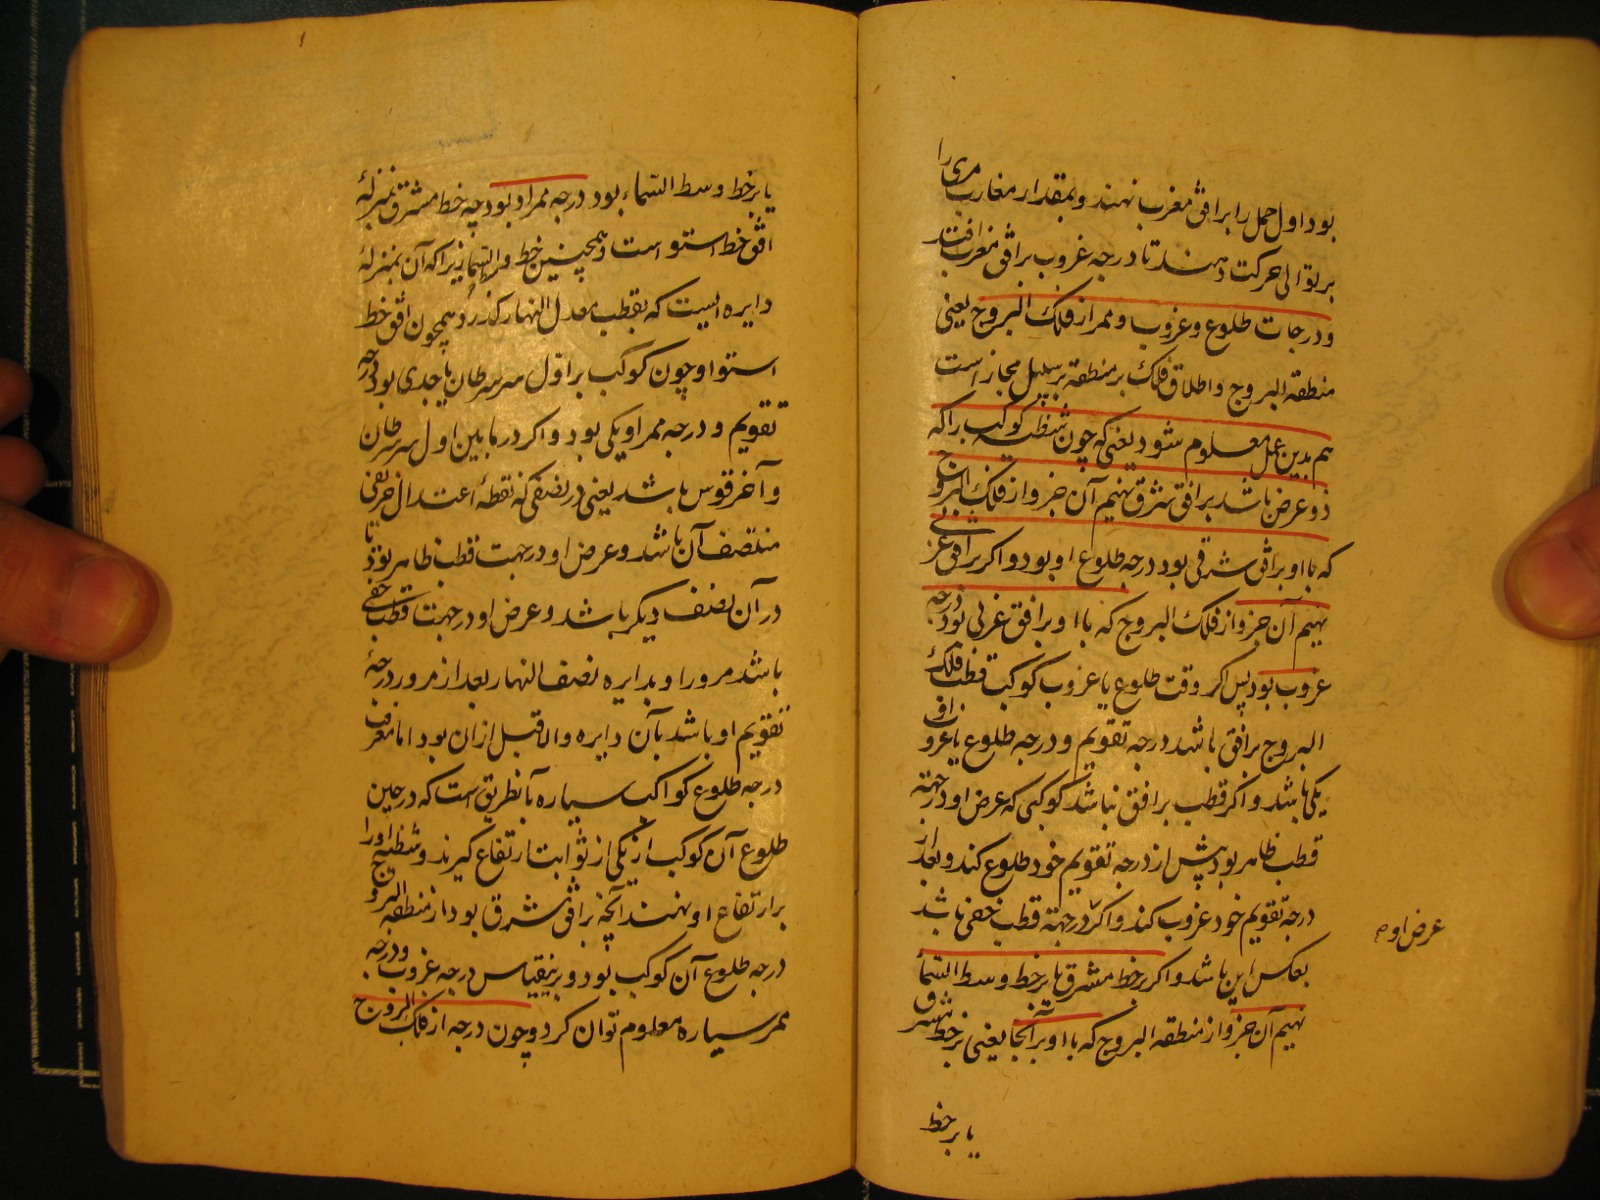 بود اول حمل را بر افق مغرب نهند و بمقدار مغارب مری را
بر توالی حرکت دهند تا درجه غروب بر افق مغرب افتد
و درجات طلوع و غروب و ممر از فلک البروج یعنی
منطقه البروج و اطلاق فلک بر منطقه بر سبیل مجاز است
هم بدین عمل معلوم شود یعنی که چون شظیه کوکب را که
ذو عرض باشد بر افق شرق نهیم آن جزو از فلک البروج
که با او بر افق شرقی بود درجه طلوع او بود و اکر بر افق غربی
نهیم آن جزو از فلک البروج که با او بر افق غربی بود درجه
غروب بود پس اکر وقت طلوع یا غروب کوکب قطب فلک
البروج بر افق باشد درجه تقویم و درجه طلوع یا غروب او
یکی باشد و اکر قطب بر افق نباشد کوکبی که عرض او در جهة
قطب ظاهر بود پیش از درجه تقویم خود طلوع کند و بعد از
درجه تقویم خود غروب کند و اکر در جهة قطب خفی باشد
عرض او
بعکس این باشد و اکر بر خط مشرق یا بر خط وسط السماء
نهیم آن جزو از منطقه البروج که با او بر آنجا یعنی بر خط مشرق
یا بر خط
یا بر خط وسط السماء بود درجه ممر او بود چه خط مشرق بمنزلهٔ
افق خط استوا است و همچنین خط وسط السماء زیرا که آن بمنزلهٔ
دایره ایست که بقطب معدل النهار کذرد همچون افق خط
استوا و چون کوکب بر اول سرطان یا جدی بود درجه
تقویم و درجه ممر او یکی بود و اکر در مابین اول سرطان
و آخر قوس باشد یعنی در نصفی که نقطهٔ اعتدال خریفی
منتصف آن باشد و عرض او در جهت قطب ظاهر بود یا
در آن نصف دیکر باشد و عرض او در جهت قطب خفی
باشد مرور او بدایره نصف النهار بعد از مرور درجهٔ
تقویم او باشد بآن دایره والا قبل از ان بود اما معرفت
درجه طلوع کواکب سیاره بآنطریق است که در حین
طلوع آن کوکب از یکی از ثوابت ارتفاع کیرند و شظیه او را
بر ارتفاع او نهند آنچه بر افق شرق بود از منطقه البروج
درجه طلوع آن کوکب بود و برینقیاس درجه غروب و درجه
ممر سیاره معلوم توان کرد و چون درجه از فلک البروج